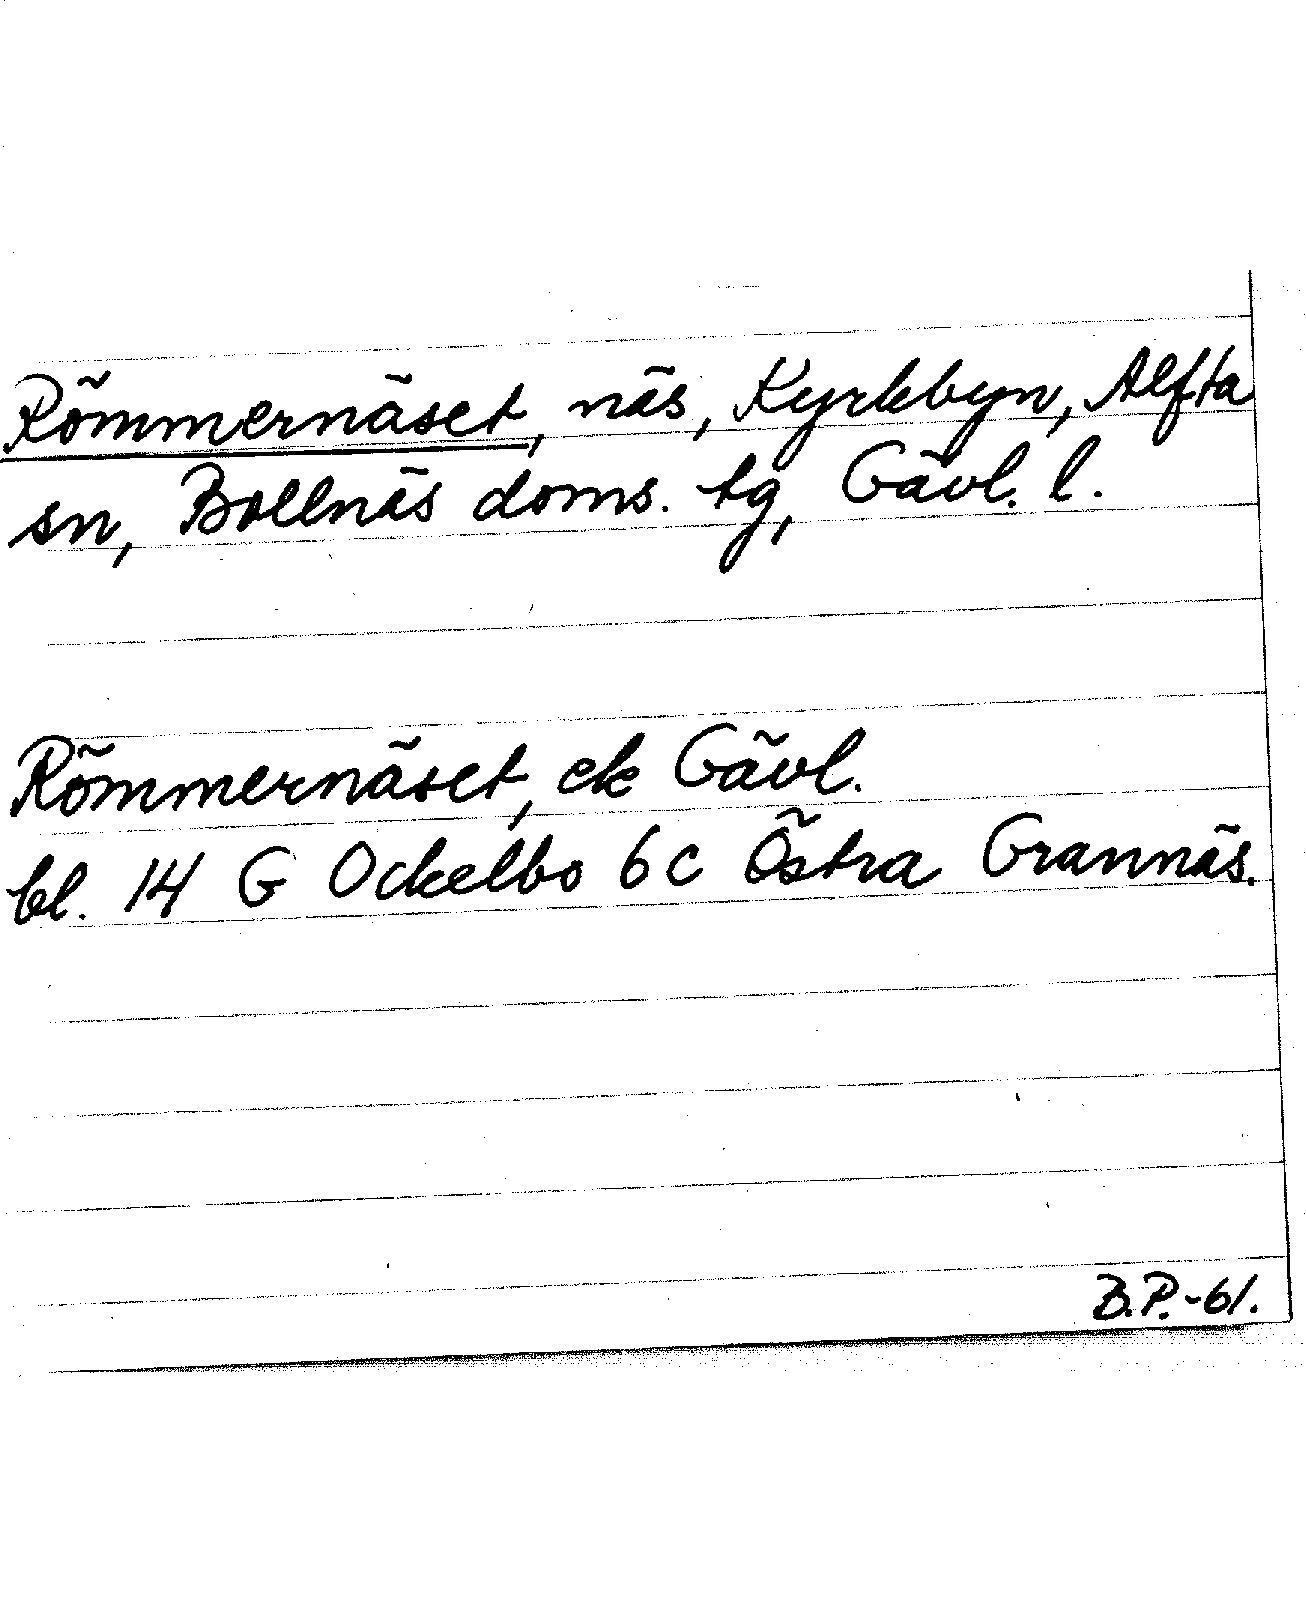 Römmernäset, näs, Kyrkbyn, Alfta
sn, Bollnäs doms. tg, Gävl. l.
Römmernäset, ek Gävl.
bl. 14 G Ockelbo 6c Östra Grannäs.
B.P.-61.